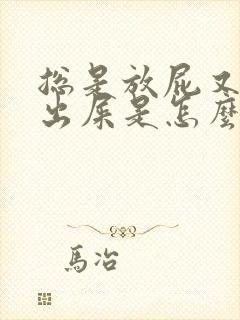 総是放屁又
出屎是怎麼
馬冶